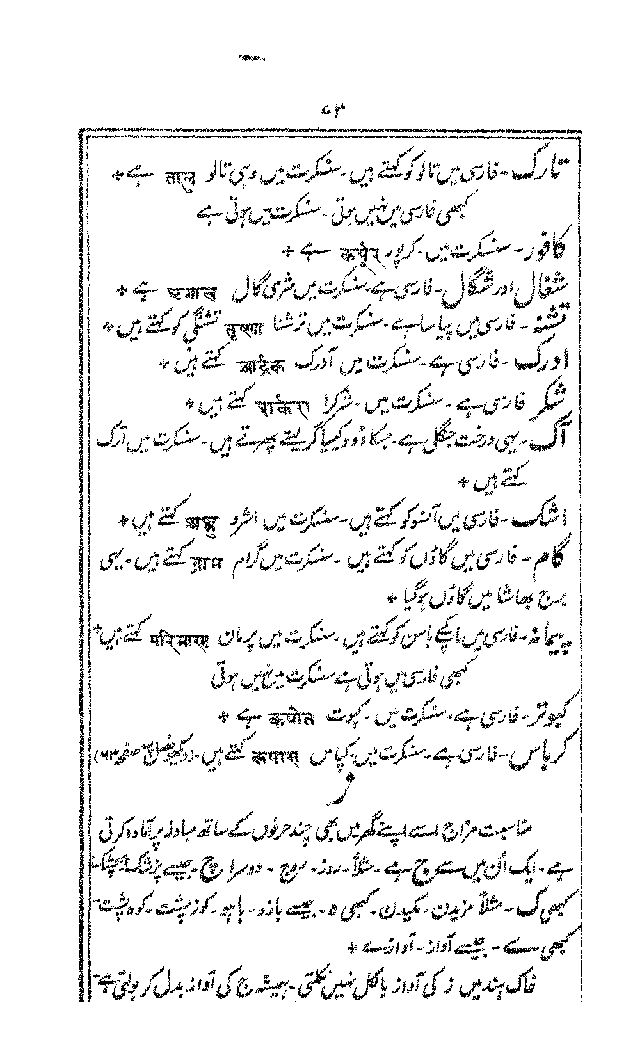 ۵۳
تارک - فارسی میں تالو کو کہتے ہیں - سنسکرت میں وہی تالو तालु ہے +
کبھی فارسی میں نہیں ہوتی - سنسکرت میں ہوتی ہے
کافور - سنسکرت میں - کرپور कर्पूर ہے +
شغال اور شگال - فارسی ہے سنسکرت میں شری گال ہے +
تشنہ - فارسی میں پیاسا ہے - سنسکرت میں ترشنا तृष्णा تشنگی کو کہتے ہیں +
ادرک - فارسی ہے - سنسکرت میں آدرک आर्द्रक کہتے ہیں +
شکر فارسی ہے - سنسکرت میں - شرکرا कہتے ہیں +
آک - یہی درخت جنگلی ہے - جسکا ڈوڈ کیمیا گر لیتے پھرتے ہیں - سنسکرت میں ارک
کہتے ہیں +
اشک - فارسی میں آنسو کو کہتے ہیں - سنسکرت میں اشرو अश्रु کہتے ہیں +
گام - فارسی میں گاؤں کو کہتے ہیں - سنسکرت میں گرام ग्राम کہتے ہیں - یہی
برج بھاشا میں گاؤں ہو گیا +
پیمانہ - فارسی میں باسن کو کہتے ہیں - سنسکرت میں پرمان परिमाण کہتے ہیں +
کبھی فارسی میں ہوتی ہے سنسکرت میں نہیں ہوتی
کبوتر - فارسی ہے - سنسکرت میں - کپوت कपोत ہے +
کرپاس - فارسی ہے - سنسکرت میں - کپاس कपास کہتے ہیں - (دیکھو صفحہ ۶۳)
ز
مناسبت مزاج اسے اپنے گھر میں بھی چند حرفوں کے ساتھ مبادلہ پر آمادہ کرتی
ہے - ایک اُن میں سے ج ہے - مثلاً - روز - روج - دوسرا چ - جیسے پزشک بچشک -
کبھی ک - مثلاً مزیدن - مکیدن - کبھی ہ - جیسے بازو - باہو - کوز پشت - کوہ پشت -
کبھی ے - جیسے آواز - آواے +
خاک ہند میں ز کی آواز بالکل نہیں نکلتی - ہمیشہ ج کی آواز بدل کر بولتی ہے -